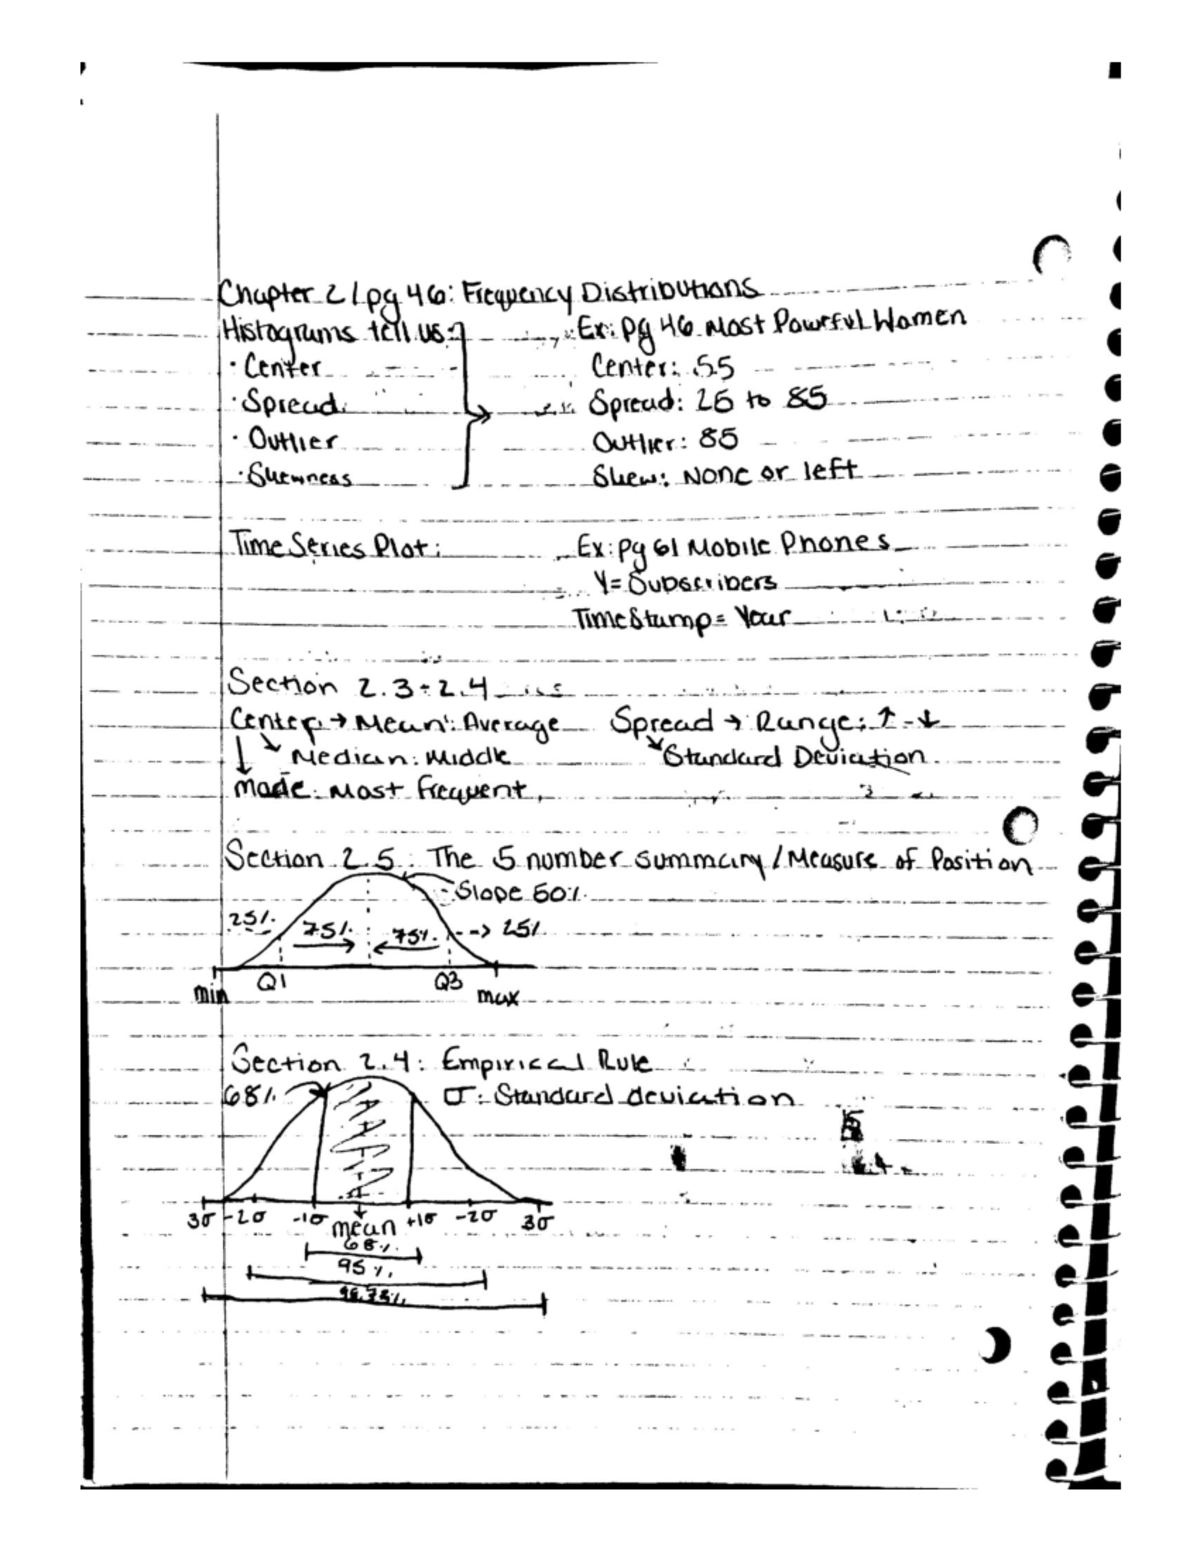 Chapter 2 / pg 46: Frequency Distributions
Histograms tell us: Ex: pg 46 Most Powerful Women
· Center Center: 55
· Spread Spread: 26 to 85
· Outlier Outlier: 85
· Skewness Skew: None or left
Time Series Plot: Ex: pg 61 Mobile Phones
Y = Subscribers
TimeStamp = Year
Section 2.3 + 2.4
Center → Mean: Average Spread → Range: ↑ - ↓
↓ ↘ Median: Middle ↘ Standard Deviation
Mode: Most frequent
Section 2.5: The 5 number summary / Measure of Position
Slope 50%
25% 75% 75% --> 25%
min Q1 Q3 max
Section 2.4: Empirical Rule
68% σ: Standard deviation
3σ -2σ -1σ mean +1σ -2σ 3σ
68%
95%